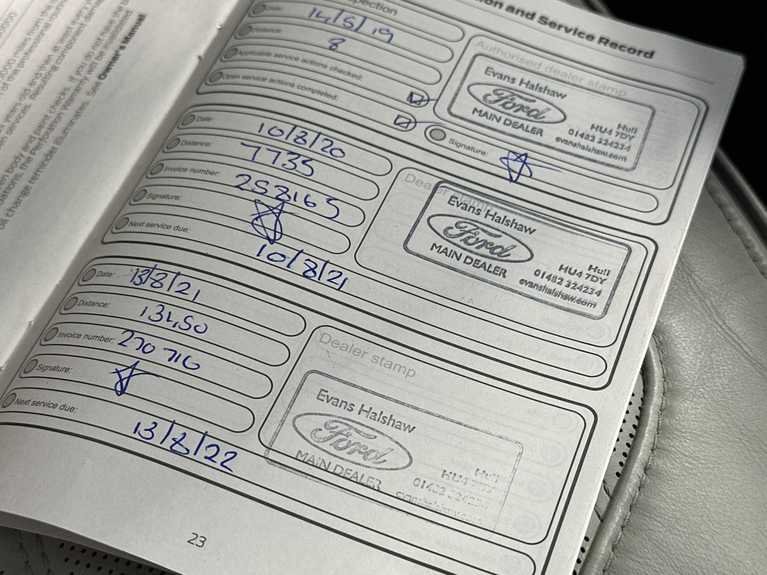 ion and Service Record
pection
Date: 14/5/19
Distance: 8
Applicable service actions checked:
Open service actions completed:
Signature:
Authorised dealer stamp
Evans Halshaw
Ford
MAIN DEALER
Hull
HU4 7DY
01482 324234
evanshalshaw.com
Date: 10/8/20
Distance: 7735
Invoice number: 258165
Signature:
Next service due: 10/8/21
Dealer stamp
Evans Halshaw
Ford
MAIN DEALER
Hull
HU4 7DY
01482 324234
evanshalshaw.com
Date: 13/8/21
Distance: 13450
Invoice number: 270716
Signature:
Next service due: 13/8/22
Dealer stamp
Evans Halshaw
Ford
MAIN DEALER
Hull
HU4 7DY
01482
23
Owner's Manual